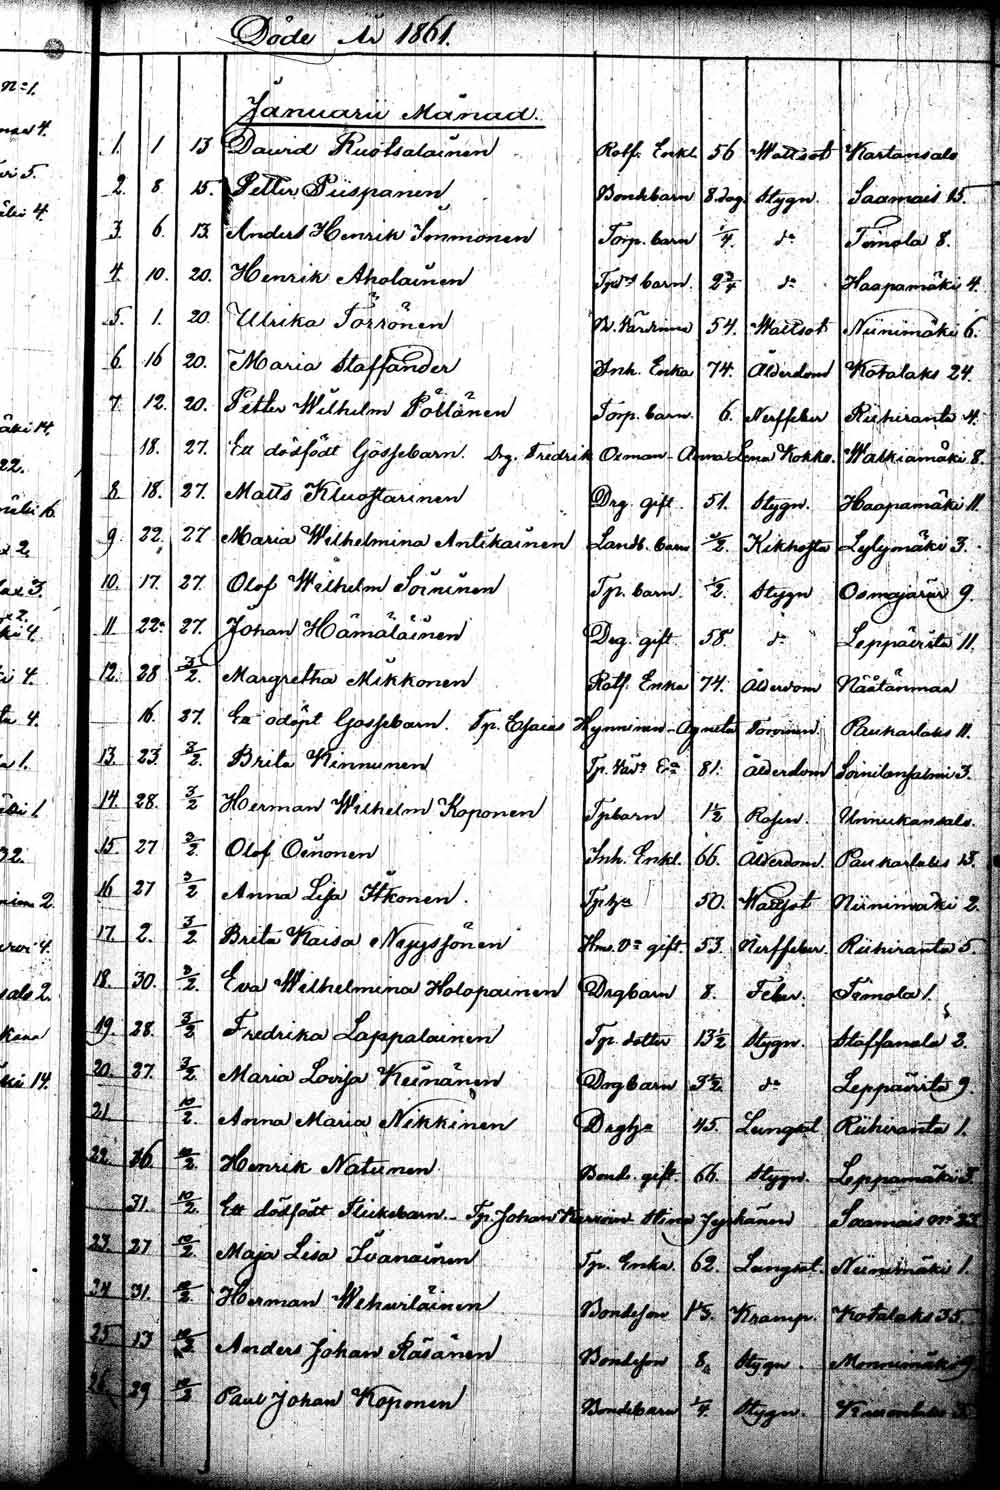 Döde År 1861.
Januarii Månad.
1. 1 13 David Ruotsalainen Rotf. Enkl. 56 Wattsot Kartansalo
2. 8. 15. Petter Piispanen Bondebarn 8.dag. Stygn. Saamais 15.
3. 6. 13. Anders Henrik Immonen Torp. barn 1/4. do Timola 8.
4. 10. 20. Henrik Aholainen barn. 2 3/4 do Haapamäki 4.
5. 1. 20. Ulrika Törrönen 54. Wattsot Niinimäki 6.
6. 16 20. Maria Staffander Inh. Enka 74. Ålderdom Kotalaks 24.
7 12. 20. Petter Wilhelm Pöllänen Torp. barn. 6. Nerffeber Riihiranta 4.
18. 27. Ett dödfödt Gossebarn. Drg. Fredrik Oeman - Anna Lena Kokko. Walkiamäki 8.
8 18. 27. Matts Kluostarinen Drg. gift. 51. Stygn. Haapamäki 11.
9 22. 27 Maria Wilhelmina Antikainen Landb. barn 1/2. Kikhosta Lylymäki 3.
10. 17. 27. Olof Wilhelm Soininen Tp. barn. 1/2. Stygn Osmajärvi 9.
11 22. 27. Johan Hämäläinen Drg. gift. 58 do Leppävirta 11.
12. 28 3/2. Margretha Mikkonen Rotf. Enka 74. Ålderdom Näätänmaa
16. 27. Ett Gossebarn. Tp. Esaias Hynninen - Agneta Torvinen. Paukarlaks 11.
13. 23 3/2. Brita Kinnunen 81. Ålderdom Soinilansalmi 3.
14. 28. 3/2 Herman Wilhelm Koponen Tpbarn 1 1/2 Unnukansalo.
15 27 3/2. Olof Oinonen Inh. Enkl. 66. Ålderdom. Paukarlaks 13.
16 27 3/2 Anna Lisa Itkonen. 50. Wattsot Niinimäki 2.
17. 2. 3/2. Brita Kaisa Nyyssönen gift. 53. Nerffeber. Riihiranta 5
18. 30. 3/2. Eva Wilhelmina Holopainen Drgbarn 8. Feber. Timola 1.
19. 28. 3/2 Fredrika Lappalainen Tp. dotter 13 1/2 Stygn. Staffansla 2.
20. 27. 3/2. Maria Lovisa Keinänen Drgbarn 3 1/2. do Leppävirta 9.
21 10/2. Anna Maria Nikkinen 45. Lungsot Riihiranta 1.
22. 26. 10/2. Henrik Natunen Bond. gift. 66. Stygn. Leppamäki 3.
31. 10/2. Ett dödfödt Flickebarn. - Tp. Johan Stina Jyrkänen Saamais no 23.
23. 27 10/2. Maja Lisa Iivanainen Tp. Enka. 62. Lungsot. Niinimäki 1.
24 31. 10/2. Herman Wehviläinen Bondeson Kramp. Kotalaks 35.
25 13 10/2 Anders Johan Räsänen Bondeson 8. Stygn. Monnimäki 9.
26 29 10/2 Paul Johan Koponen Bondebarn 1/4. Stygn.